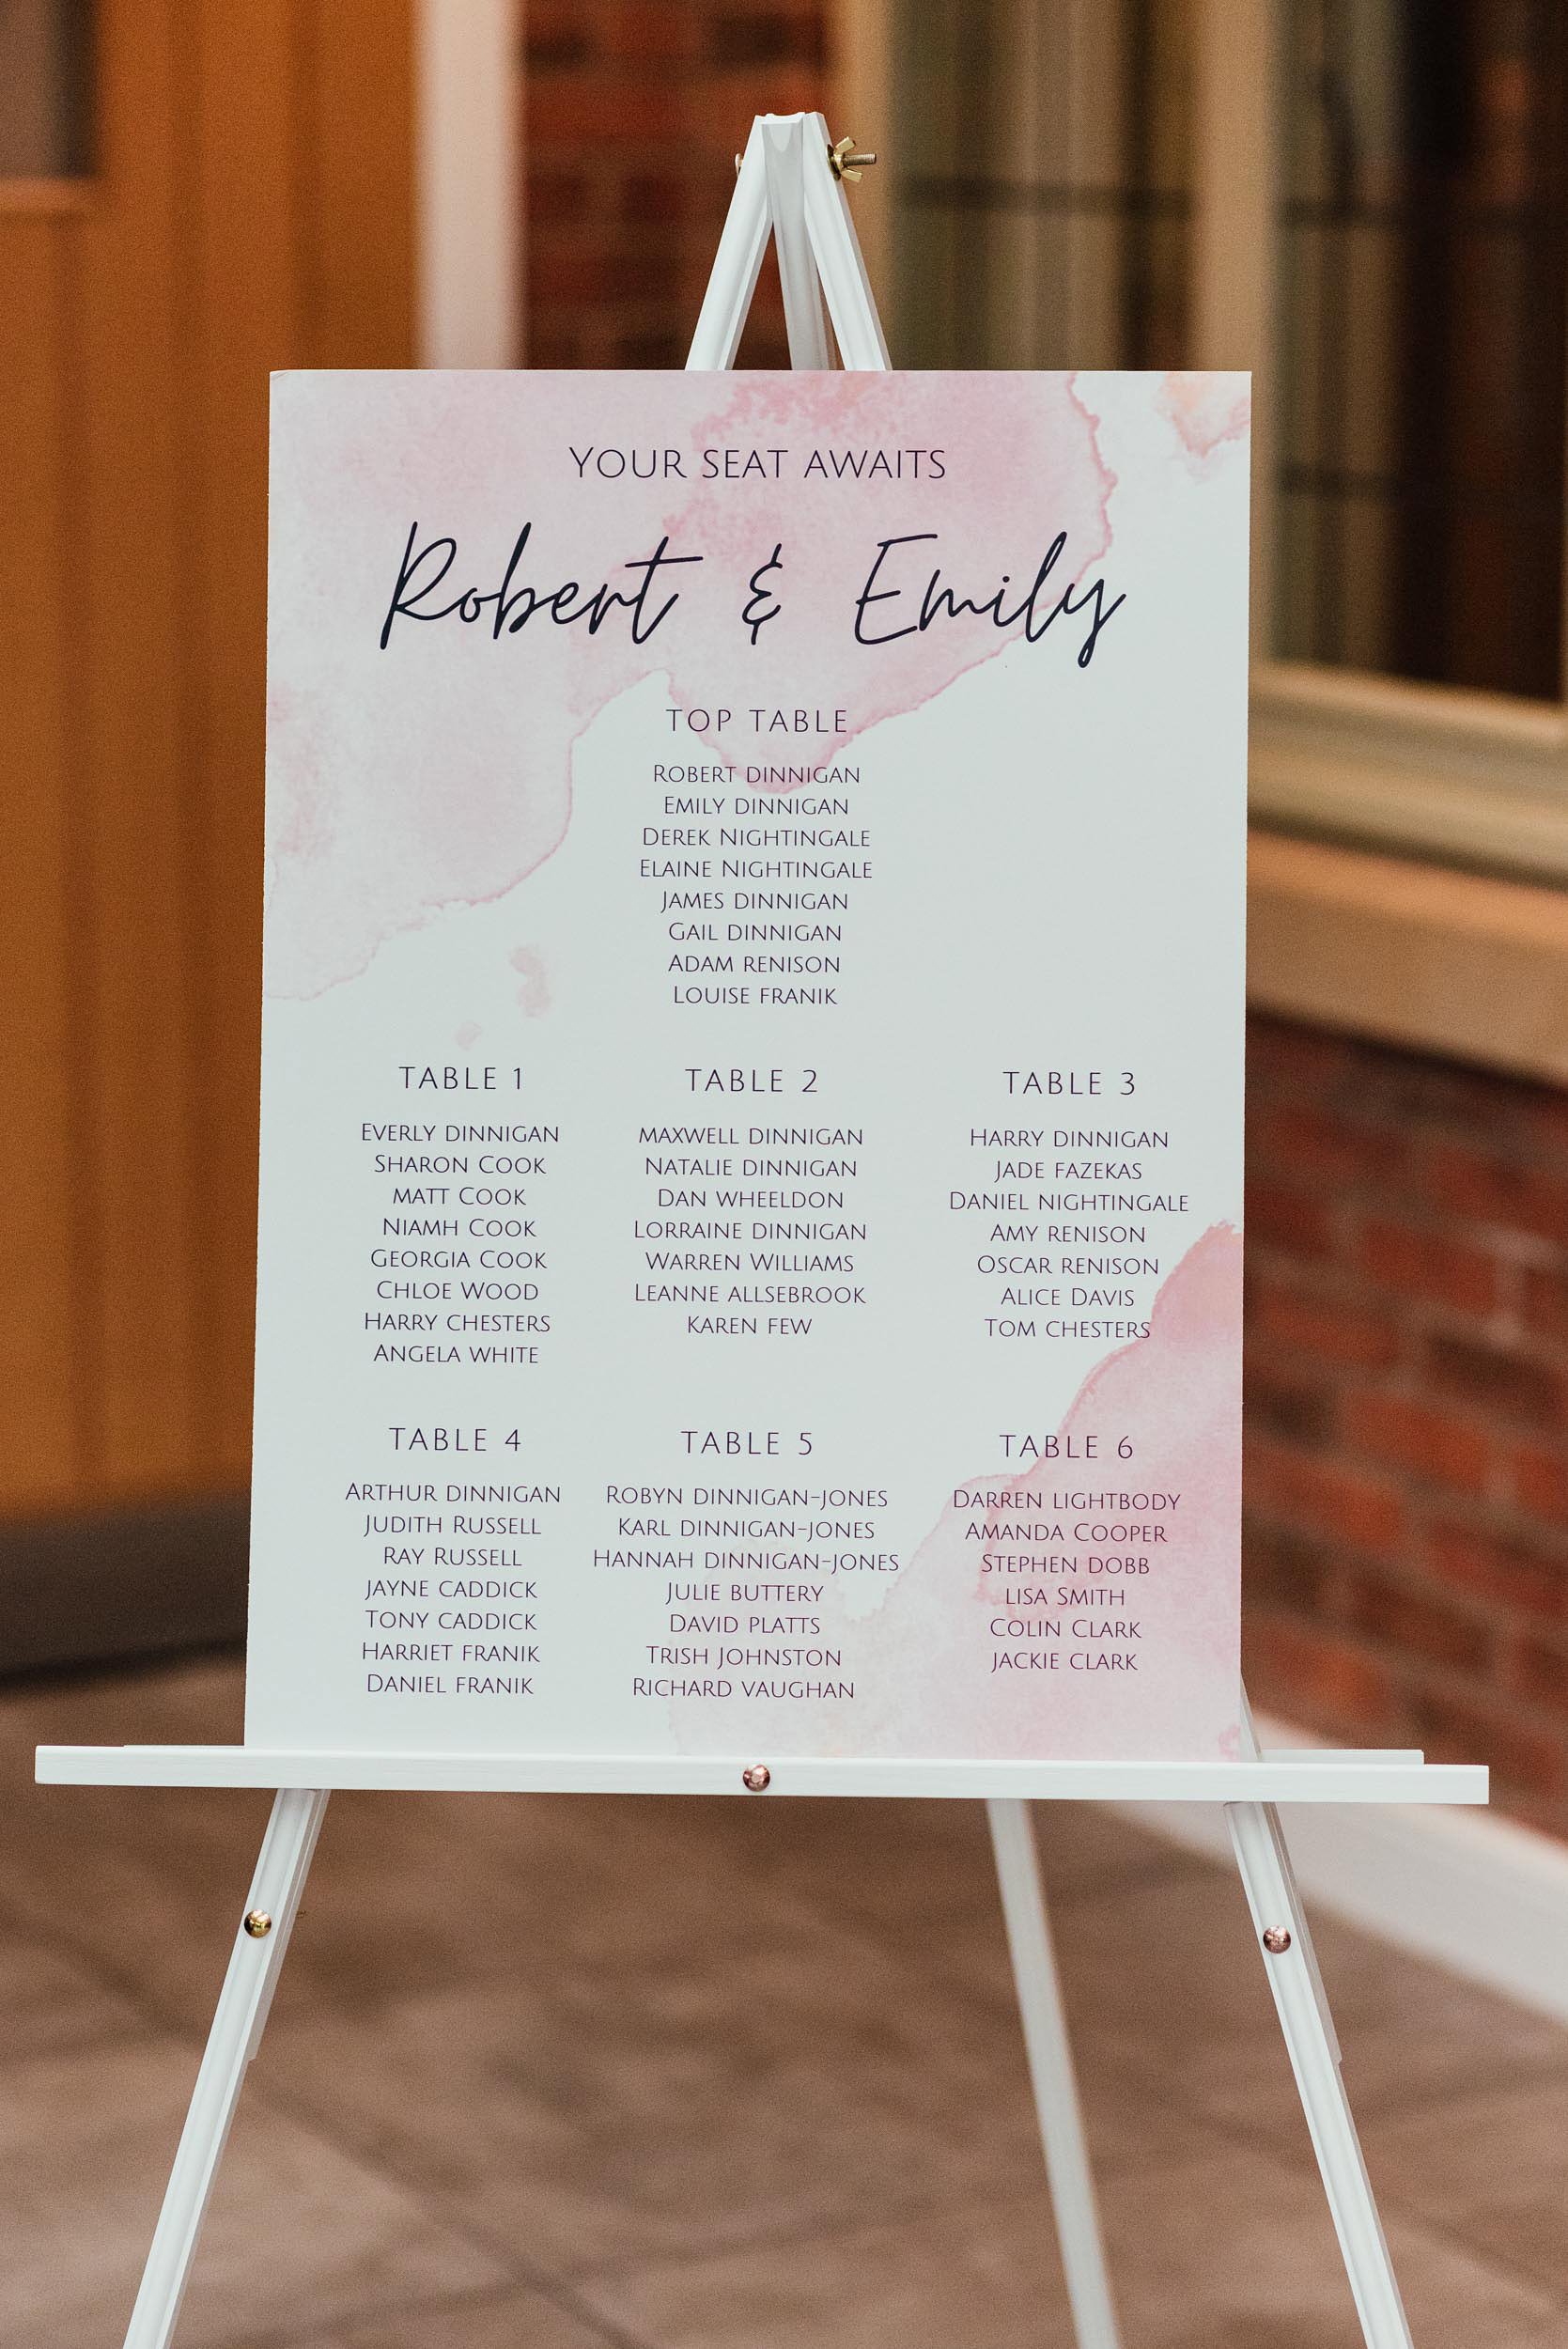 YOUR SEAT AWAITS
Robert & Emily
TOP TABLE
ROBERT DINNIGAN
EMILY DINNIGAN
DEREK NIGHTINGALE
ELAINE NIGHTINGALE
JAMES DINNIGAN
GAIL DINNIGAN
ADAM RENISON
LOUISE FRANIK
TABLE 1
EVERLY DINNIGAN
SHARON COOK
MATT COOK
NIAMH COOK
GEORGIA COOK
CHLOE WOOD
HARRY CHESTERS
ANGELA WHITE
TABLE 2
MAXWELL DINNIGAN
NATALIE DINNIGAN
DAN WHEELDON
LORRAINE DINNIGAN
WARREN WILLIAMS
LEANNE ALLSEBROOK
KAREN FEW
TABLE 3
HARRY DINNIGAN
JADE FAZEKAS
DANIEL NIGHTINGALE
AMY RENISON
OSCAR RENISON
ALICE DAVIS
TOM CHESTERS
TABLE 4
ARTHUR DINNIGAN
JUDITH RUSSELL
RAY RUSSELL
JAYNE CADDICK
TONY CADDICK
HARRIET FRANIK
DANIEL FRANIK
TABLE 5
ROBYN DINNIGAN-JONES
KARL DINNIGAN-JONES
HANNAH DINNIGAN-JONES
JULIE BUTTERY
DAVID PLATTS
TRISH JOHNSTON
RICHARD VAUGHAN
TABLE 6
DARREN LIGHTBODY
AMANDA COOPER
STEPHEN DOBB
LISA SMITH
COLIN CLARK
JACKIE CLARK